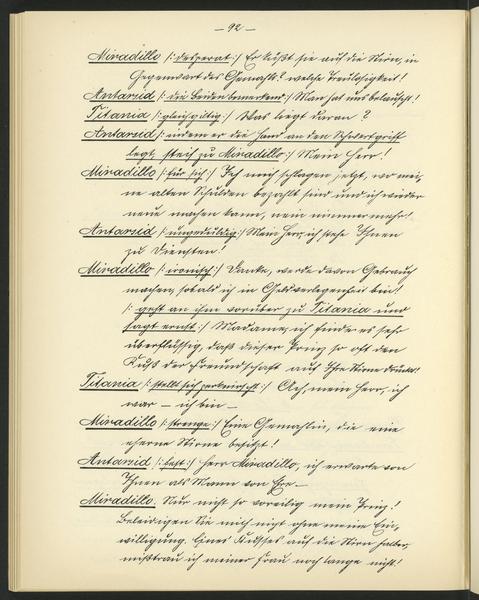 — 92 —
Miradillo /: desperat :/ Er küßt sie auf die Stirn, in
Gegenwart des Gemahls? welche Treulosigkeit!
Antarsid /: die Beiden bemerkend :/ Man hat uns belauscht!
Titania /: gleichgiltig :/ Was liegt daran?
Antarsid /: indem er die Hand an den Schwertgriff
legt, steif zu Miradillo :/ Mein Herr!
Miradillo /: für sich :/ Ich mich schlagen jetzt, wo mei-
ne alten Schulden bezahlt sind und ich wieder
neue machen kann, nein nimmermehr!
Antarsid /: ungeduldig :/ Mein Herr, ich stehe Ihnen
zu Diensten!
Miradillo /: ironisch :/ Danke, werde davon Gebrauch
machen, sobald ich in Geldverlegenheit bin!
/: geht an ihm vorüber zu Titania und
sagt ernst :/ Madame, ich finde es sehr
überflüssig, daß dieser Prinz so oft den
Kuß der Freundschaft auf Ihre Stirne drückt!
Titania /: stellt sich zerknirscht :/ Ach, mein Herr, ich
war — ich bin —
Miradillo /: strenge :/ Eine Gemahlin, die eine
eherne Stirne besitzt!
Antarsid /: fest :/ Herr Miradillo, ich erwarte von
Ihnen als Mann von Ehre —
Miradillo. Nur nicht so voreilig mein Prinz!
Beleidigen Sie mich nicht ohne meine Ein-
willigung. Eines Kusses auf die Stirn halber,
mißtrau ich meiner Frau noch lange nicht!